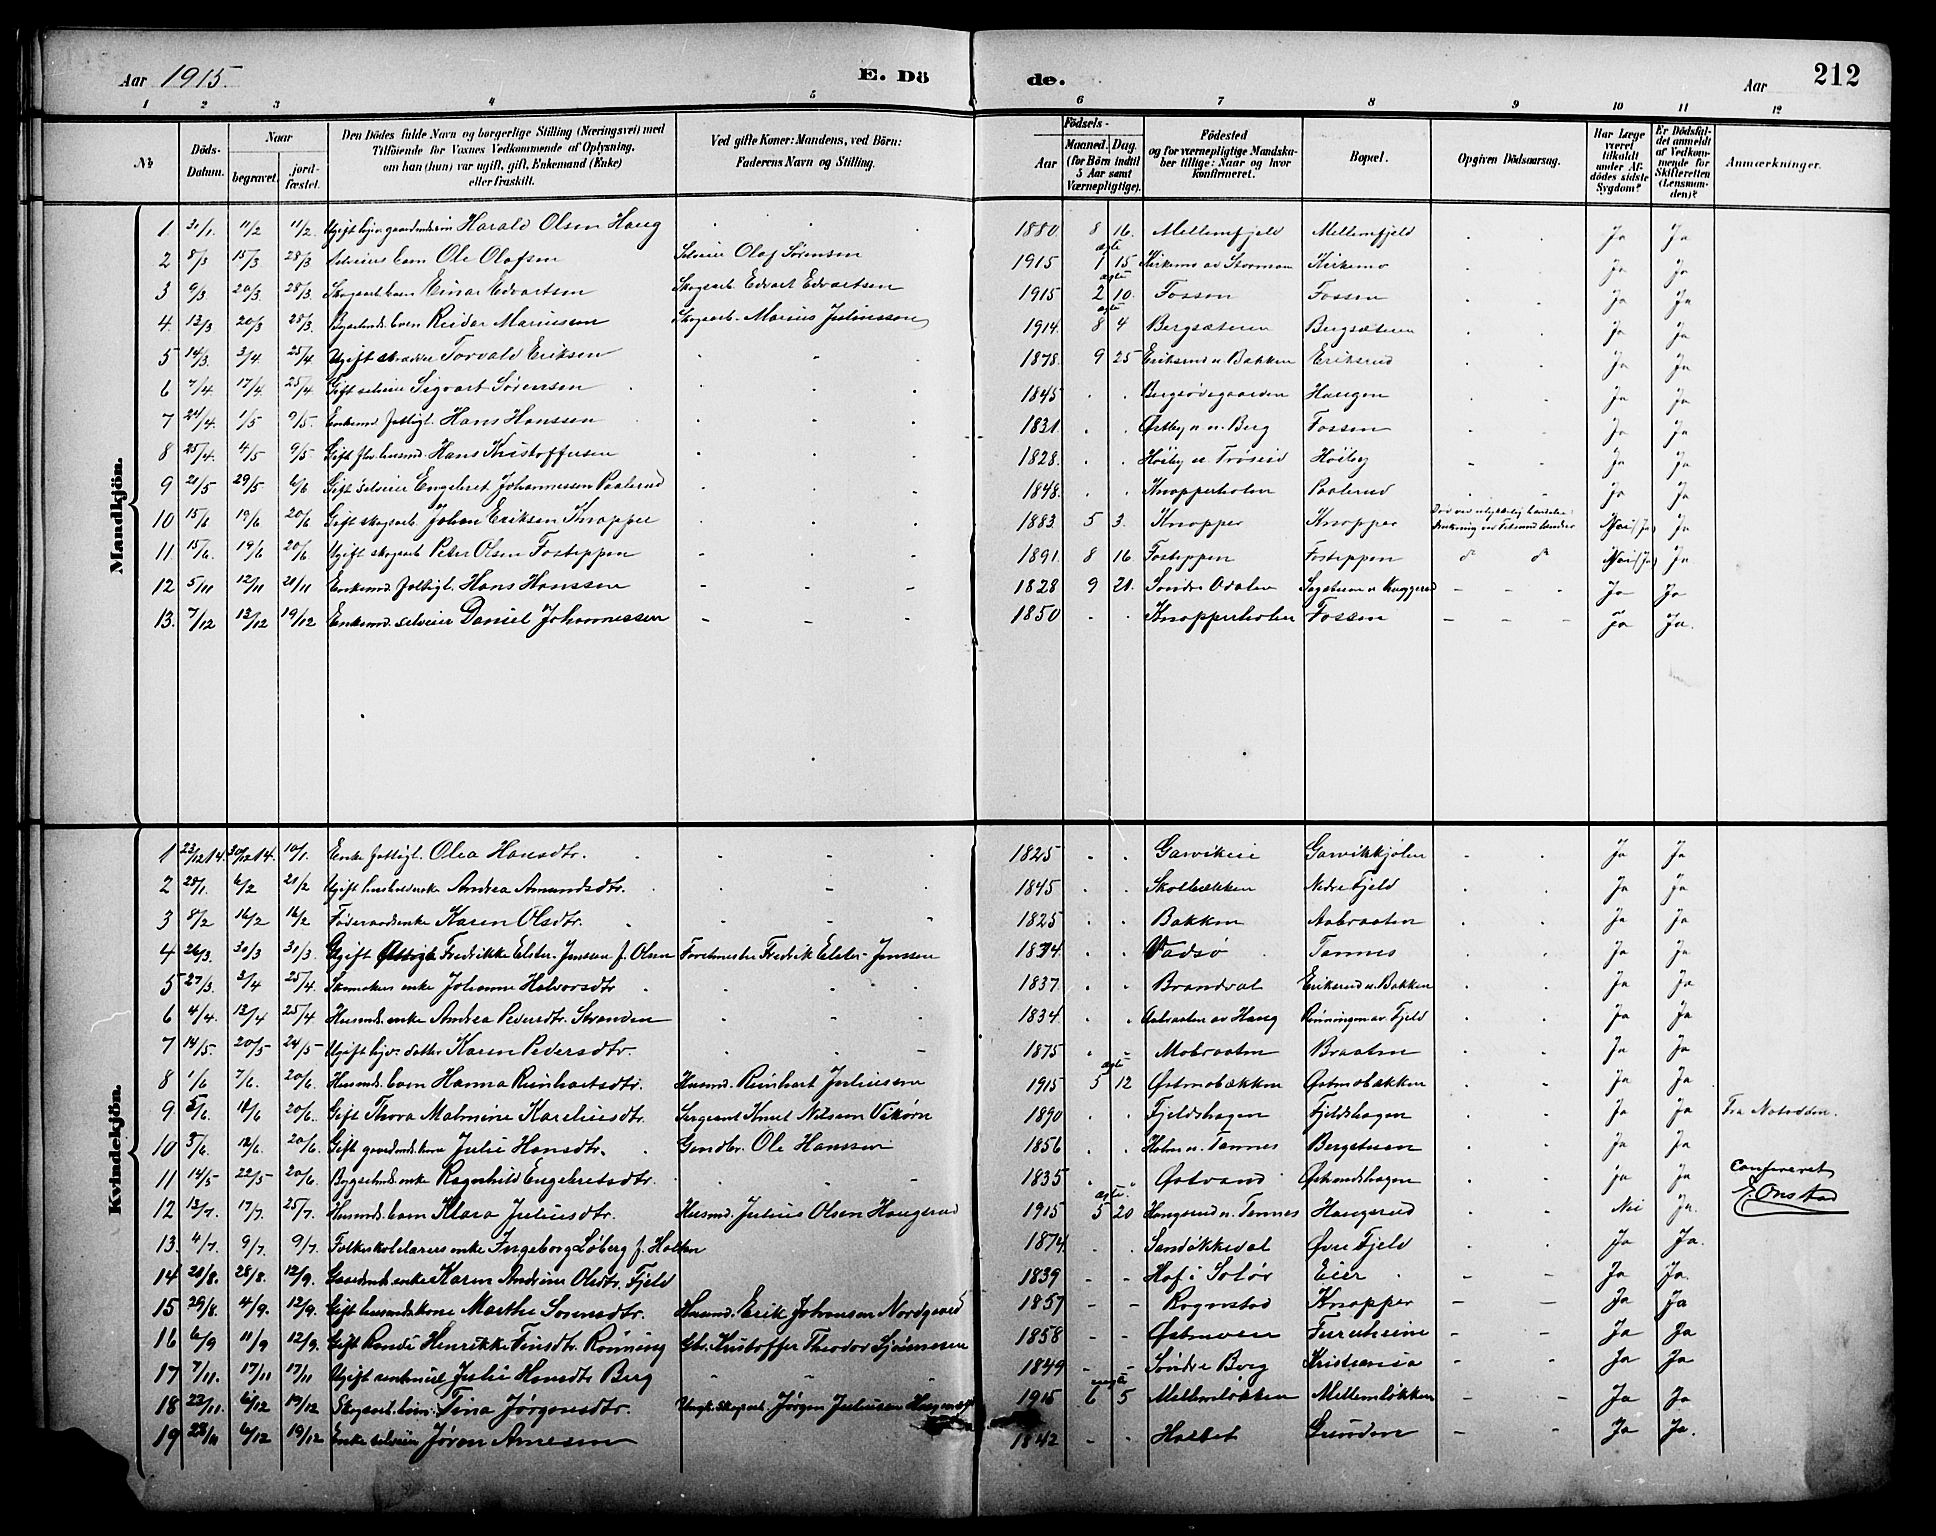 Aar 1915. E. Dö de. Aar 212
1 2 3 4 5 6 7 8 9 10 11 12
No Döds-Datum. Naar begravet. jordfæstet. Den Dödes fulde Navn og borgerlige Stilling (Næringsvei) med Tilföiende for Voxnes Vedkommende af Oplysning, om han (hun) var ugift, gift, Enkemand (Enke) eller fraskilt. Ved gifte Koner: Mandens, ved Börn: Faderens Navn og Stilling. Födsels- Aar Maaned. Dag. (for Börn indtil 5 Aar samt Værnepligtige). Födested og for værnepligtige Mandskaber tillige: Naar og hvor konfirmeret. Bopæl. Opgiven Dödsaarsag. Har Læge været tilkaldt under Afdödes sidste Sygdom? Er Dödsfaldet anmeldt af Vedkommende for Skifteretten (Lensmanden)? Anmærkninger.
Mandkjön.
1 31/1. 11/2 11/2. Ugift Harald Olsen Haug 1880 8 16. Mellemfjeld Mellemfjeld Ja Ja
2 8/3 15/3 28/3 Selveiers barn Ole Olafsen Selveier Olaf Sørensen 1915 ægte 1 15 Kirkemo av Storman Kirkemo Ja Ja
3 9/3. 20/3. 28/3. Skogsarb. barn Einar Edvartsen Skogsarb. Edvart Edvartsen 1915 ægte 2 10. Fossen Fossen Ja Ja
4. 12/3 20/3 28/3 barn Reidar Mariussen Skogsarb. Marius Juliussen 1914. ægte 8 4 Bergsæteren Bergsæteren Ja Ja
5 14/3. 3/4. 25/4 Ugift skrædder Torvald Eriksen 1878. 9 25 Eriksrud u. Bakken Eriksrud Ja Ja
6 7/4. 17/4 25/4 Gift selveier Sigvart Sørensen 1845 Haugen Ja Ja
7 24/4. 1/5 9/5- Enkemd. fattigl. Hans Hanssen 1831. Østby u. Berg Fossen Ja Ja
8 25/4. 4/5 9/5 Gift Hans Kristoffersen 1828. Høiby u Trøseid Høiby Ja Ja
9 21/5 29/5 6/6 Gift selveier Engebret Johannessen Paalerud 1848. Knapperholen Paalerud Ja Ja
10 15/6 19/6 20/6 Gift skogsarb. Johan Eriksen Knapper 1883. 5 3. Knapper Knapper Død ved ulykkelig hændelse: Drukning Nei (Ja) Ja
11. 15/6. 19/6 20/6. Ugift skogsarb Peter Olsen Fosteppen 1891. 8 16 Fosteppen Fosteppen do do Nei (Ja) Ja
12 5/11 12/11 21/11 Enkemd fattigl. Hans Hanssen 1828 9 21. Søndre Odalen Ja Ja
13. 7/12 13/12 19/12 Enkemd. selveier Daniel Johannessen 1850 Knapperholen Fossen Ja Ja.
Kvindekjön.
1 23/12 14. 30/12 14. 10/1. Enke fattigl. Olea Hansdtr. 1825 Garvikeie Garvikkjølen Ja Ja
2 28/1. 6/2 21/2 Ugift Andrea Amundsdtr. 1845 Skolbækken Nedre Fjeld Ja Ja
3 8/2 16/2 16/2 Føderaadsenke Karen Olsdtr. 1825 Bakken Aabraaten Ja Ja
4 26/3. 31/3 31/3. Gift Fredrikke Elster-Jenssen f. Olsen Forstmester Fredrik Elster-Jenssen 1874 Vadsø Tannes Ja Ja
5 27/3. 3/4 25/4. Skomakers enke Johanne Halvorsdtr 1837. Brandval Eriksrud u. Bakken Ja Ja
6 4/4. 12/4 25/4 Husmds. enke Andrea Pedersdtr. Stranden 1834 Aabraaten av Haug Rønningen av Fjeld Ja Ja
7 14/5. 20/5- 24/5- Ugift datter Karen Pedersdtr. 1875 Mobraaten Braaten Ja Ja
8 1/6 7/6. 20/6. Husmds. barn Hanna Reinhartsdtr. Husmd. Reinhart Juliussen 1915 ægte 5 12 Østmobækken Østmobækken Ja Ja
9 5/6. 11/6 20/6. Gift Thora Malmine Kareliusdtr. Sergeant Knut Nilssen Vikørn 1890 Fjeldshagen Fjeldshagen Ja Ja Fra Notodden.
10 5/6. 12/6. 20/6. Gift gaardmds.kone Julie Hansdtr. Gmdbr. Ole Hanssen 1856 Holen u. Tannes Bergstuen Ja Ja
11 14/5- 22/5- 20/6. enke Ragnhild Engebretsdtr. 1835 Østvand Ja Ja Confereret
12 13/7. 17/7. 25/7. Husmds. barn Klara Juliusdtr. Husmd. Julius Olsen Haugerud 1915 ægte 5 20 Haugerud u. Tannes Haugerud Nei Ja. E. Onstad
13. 4/7. 9/7. 9/7. Folkeskolelærers enke Ingeborg Løberg f. Holten 1874. Sandøkkedal Øvre Fjeld Ja Ja.
14 20/8. 28/8. 12/9. Gaardmds. enke Karen Andrine Olsdtr. Fjeld 1839 Hof i Solør Eier Ja Ja.
15 29/8. 4/9. 12/9. Gift husmandskone Marthe Sørensdtr. Husmd. Erik Johansen Nordgaard 1857 Rognstad Knapper Ja Ja
16 6/9 11/9 12/9. Gift Randi Henrikke Finsdtr. Rønning Gbr. Kristoffer Theodor 1858 Østmoen Furuheim Ja Ja
17. 7/11. 17/11 17/11 Ugift Julie Hansdtr Berg 1849 Søndre Berg Kristiania Ja Ja
18 22/11. 6/12 19/12 Skogsarb. barn Tina Jørgensdtr. Jørgen Juliussen 1915 uægte 6 5 Mellemløkken Mellemløkken Ja Ja
19 28/11 6/12 19/12 Enke selveier Jøran Arnesen 1842 Ja Ja.